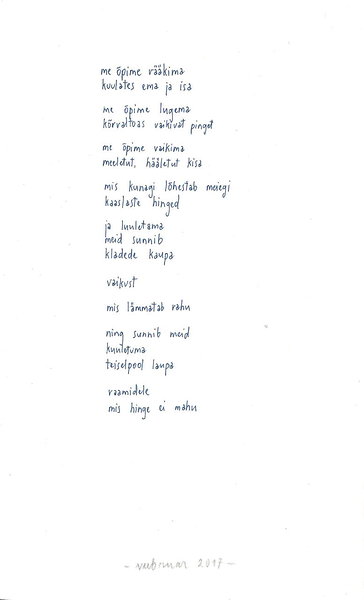 me õpime rääkima
kuulates ema ja isa
me õpime lugema
kõrvaltoas vaikivat pinget
me õpime vaikima
meeletut, hääletut kisa
mis kunagi lõhestab meiegi
kaaslaste hinged
ja luuletama
meid sunnib
kladede kaupa
vaikust
mis lämmatab rahu
ning sunnib meid
kuuletuma
teiselpool laupa
raamidele
mis hinge ei mahu
- veebruar 2017 -